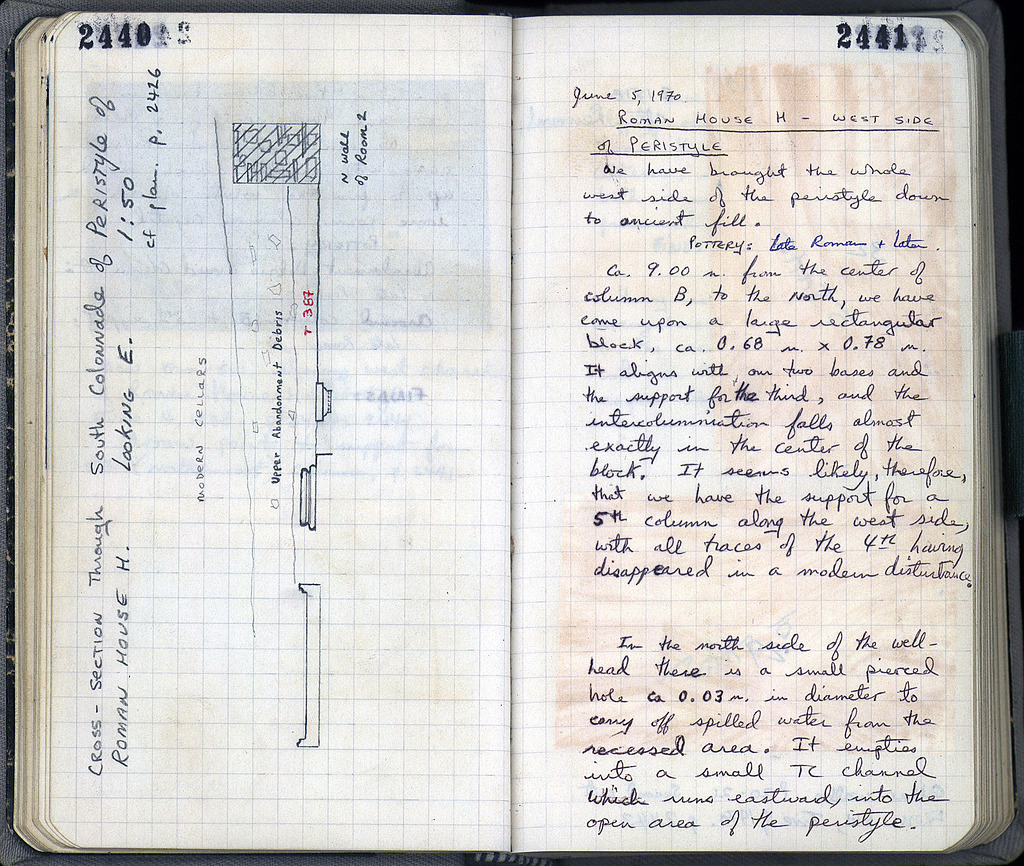 2440
Cross-Section Through South Colonnade of Peristyle of
Roman House H. Looking E. 1:50
cf plan p. 2426
N Wall
of Room 2
Modern Cellars
Upper Abandonment Debris
T 387
2441
June 5, 1970
Roman House H - West Side
of Peristyle
We have brought the whole
west side of the peristyle down
to ancient fill.
Pottery: Late Roman + Later.
Ca. 9.00 m. from the center of
column B, to the North, we have
come upon a large rectangular
block, ca. 0.68 m. x 0.78 m.
It aligns with our two bases and
the support for the third, and the
intercolumniation falls almost
exactly in the center of the
block. It seems likely, therefore,
that we have the support for a
5th column along the west side,
with all traces of the 4th having
disappeared in a modern disturbance.
In the north side of the well-
head there is a small pierced
hole ca 0.03 m. in diameter to
carry off spilled water from the
recessed area. It empties
into a small TC channel
which runs eastward, into the
open area of the peristyle.